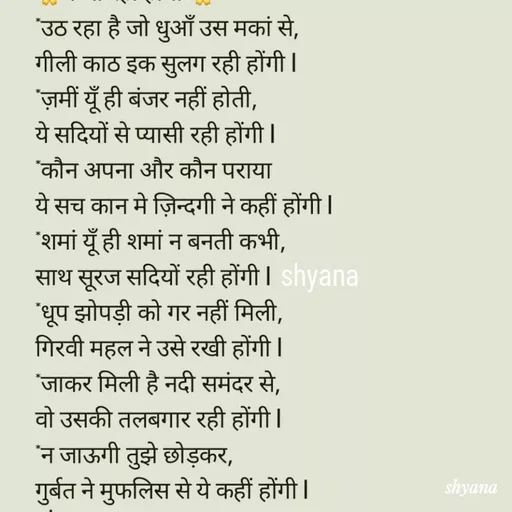 *उठ रहा है जो धुआँ उस मकां से,
गीली काठ इक सुलग रही होंगी l
*ज़मीं यूँ ही बंजर नहीं होती,
ये सदियों से प्यासी रही होंगी l
*कौन अपना और कौन पराया
ये सच कान मे ज़िन्दगी ने कहीं होंगी l
*शमां यूँ ही शमां न बनती कभी,
साथ सूरज सदियों रही होंगी l shyana
*धूप झोपड़ी को गर नहीं मिली,
गिरवी महल ने उसे रखी होंगी l
*जाकर मिली है नदी समंदर से,
वो उसकी तलबगार रही होंगी l
*न जाऊगी तुझे छोड़कर,
गुर्बत ने मुफलिस से ये कहीं होंगी l
shyana